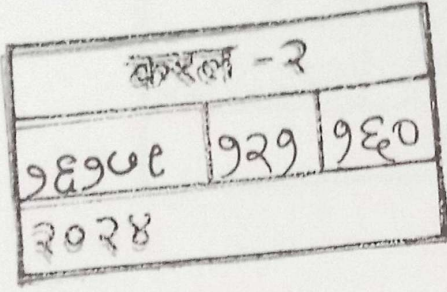 करल - २
१६१७९ १२१ १६०
२०२४